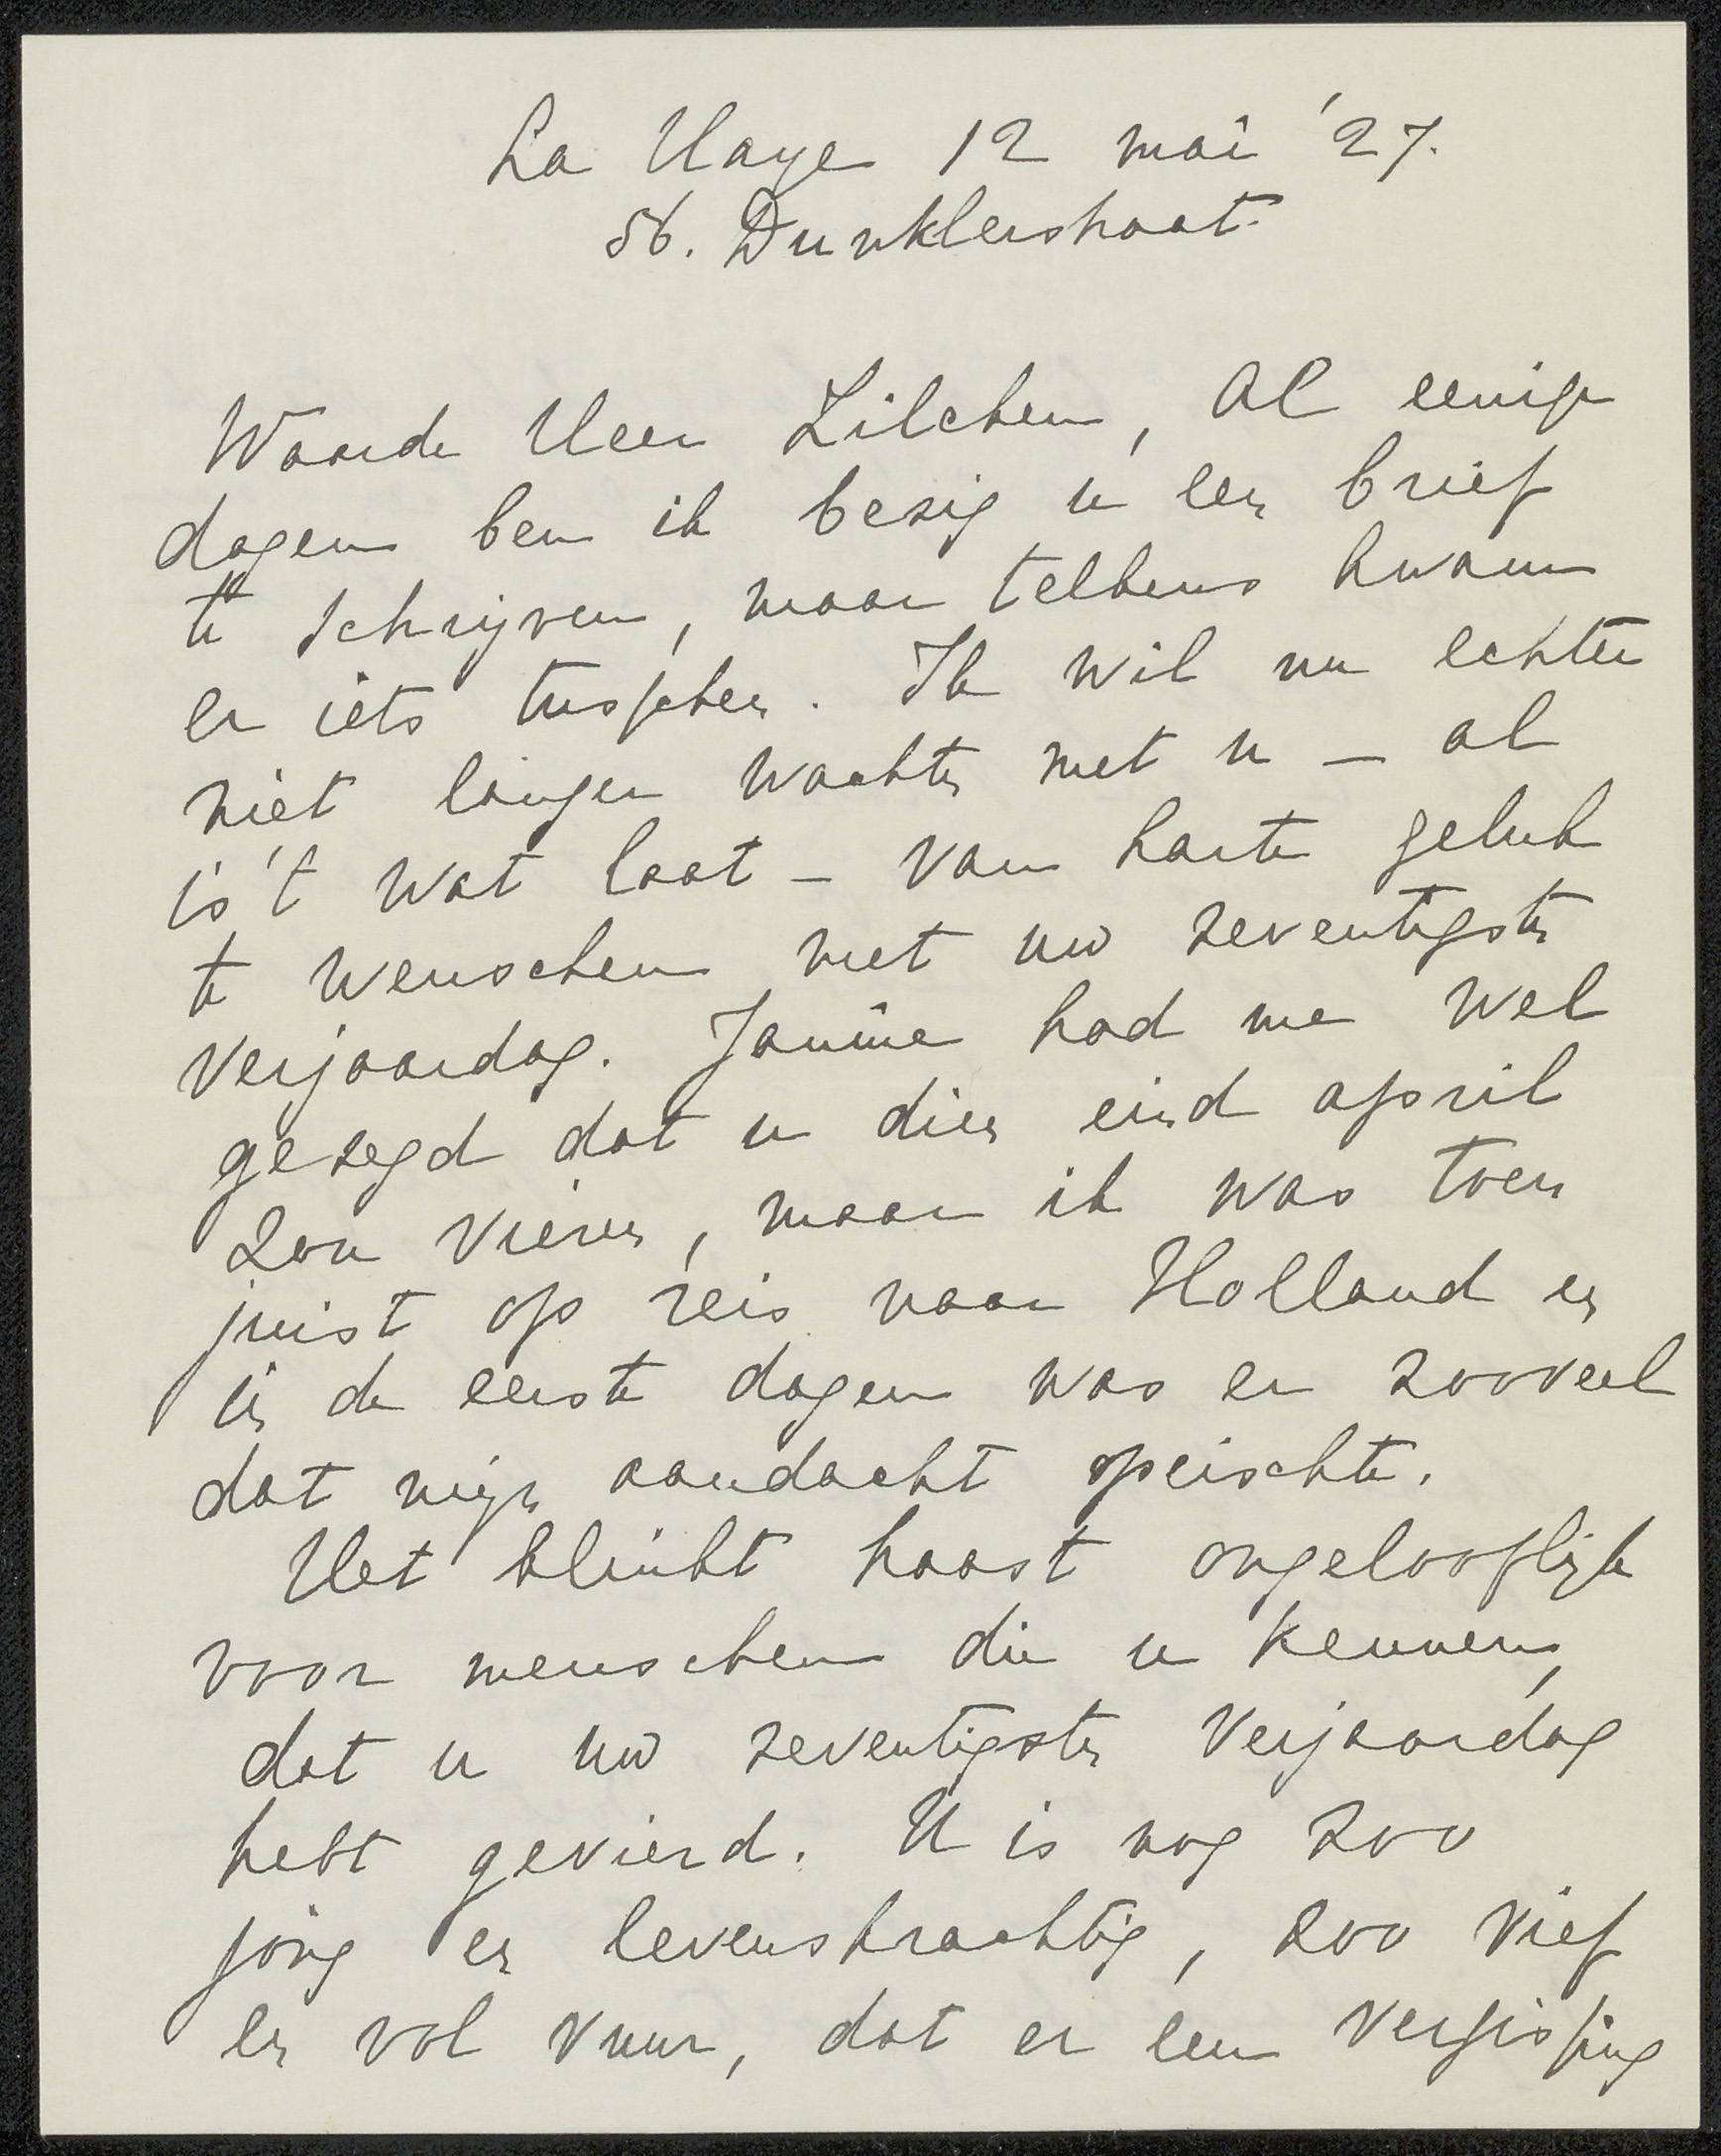 La Haye 12 mai '27.
56. Dunklerstraat.
Waarde Heer Zilcken, Al eenige
dagen ben ik bezig u een brief
te schrijven, maar telkens kwam
er iets tusschen. Ik wil nu echter
niet langer wachten met u – al
is 't wat laat – van harte geluk
te wenschen met uw zeventigsten
verjaardag. Jannie had me wel
gezegd dat u dien eind april
zou vieren, maar ik was toen
juist op reis naar Holland en
in de eerste dagen was er zooveel
dat mijn aandacht opeischte.
Het klinkt haast ongelooflijk
voor menschen die u kennen,
dat u uw zeventigsten verjaardag
hebt gevierd. U is nog zoo
jong en levenskrachtig, zoo vief
en vol vuur, dat er een vergissing